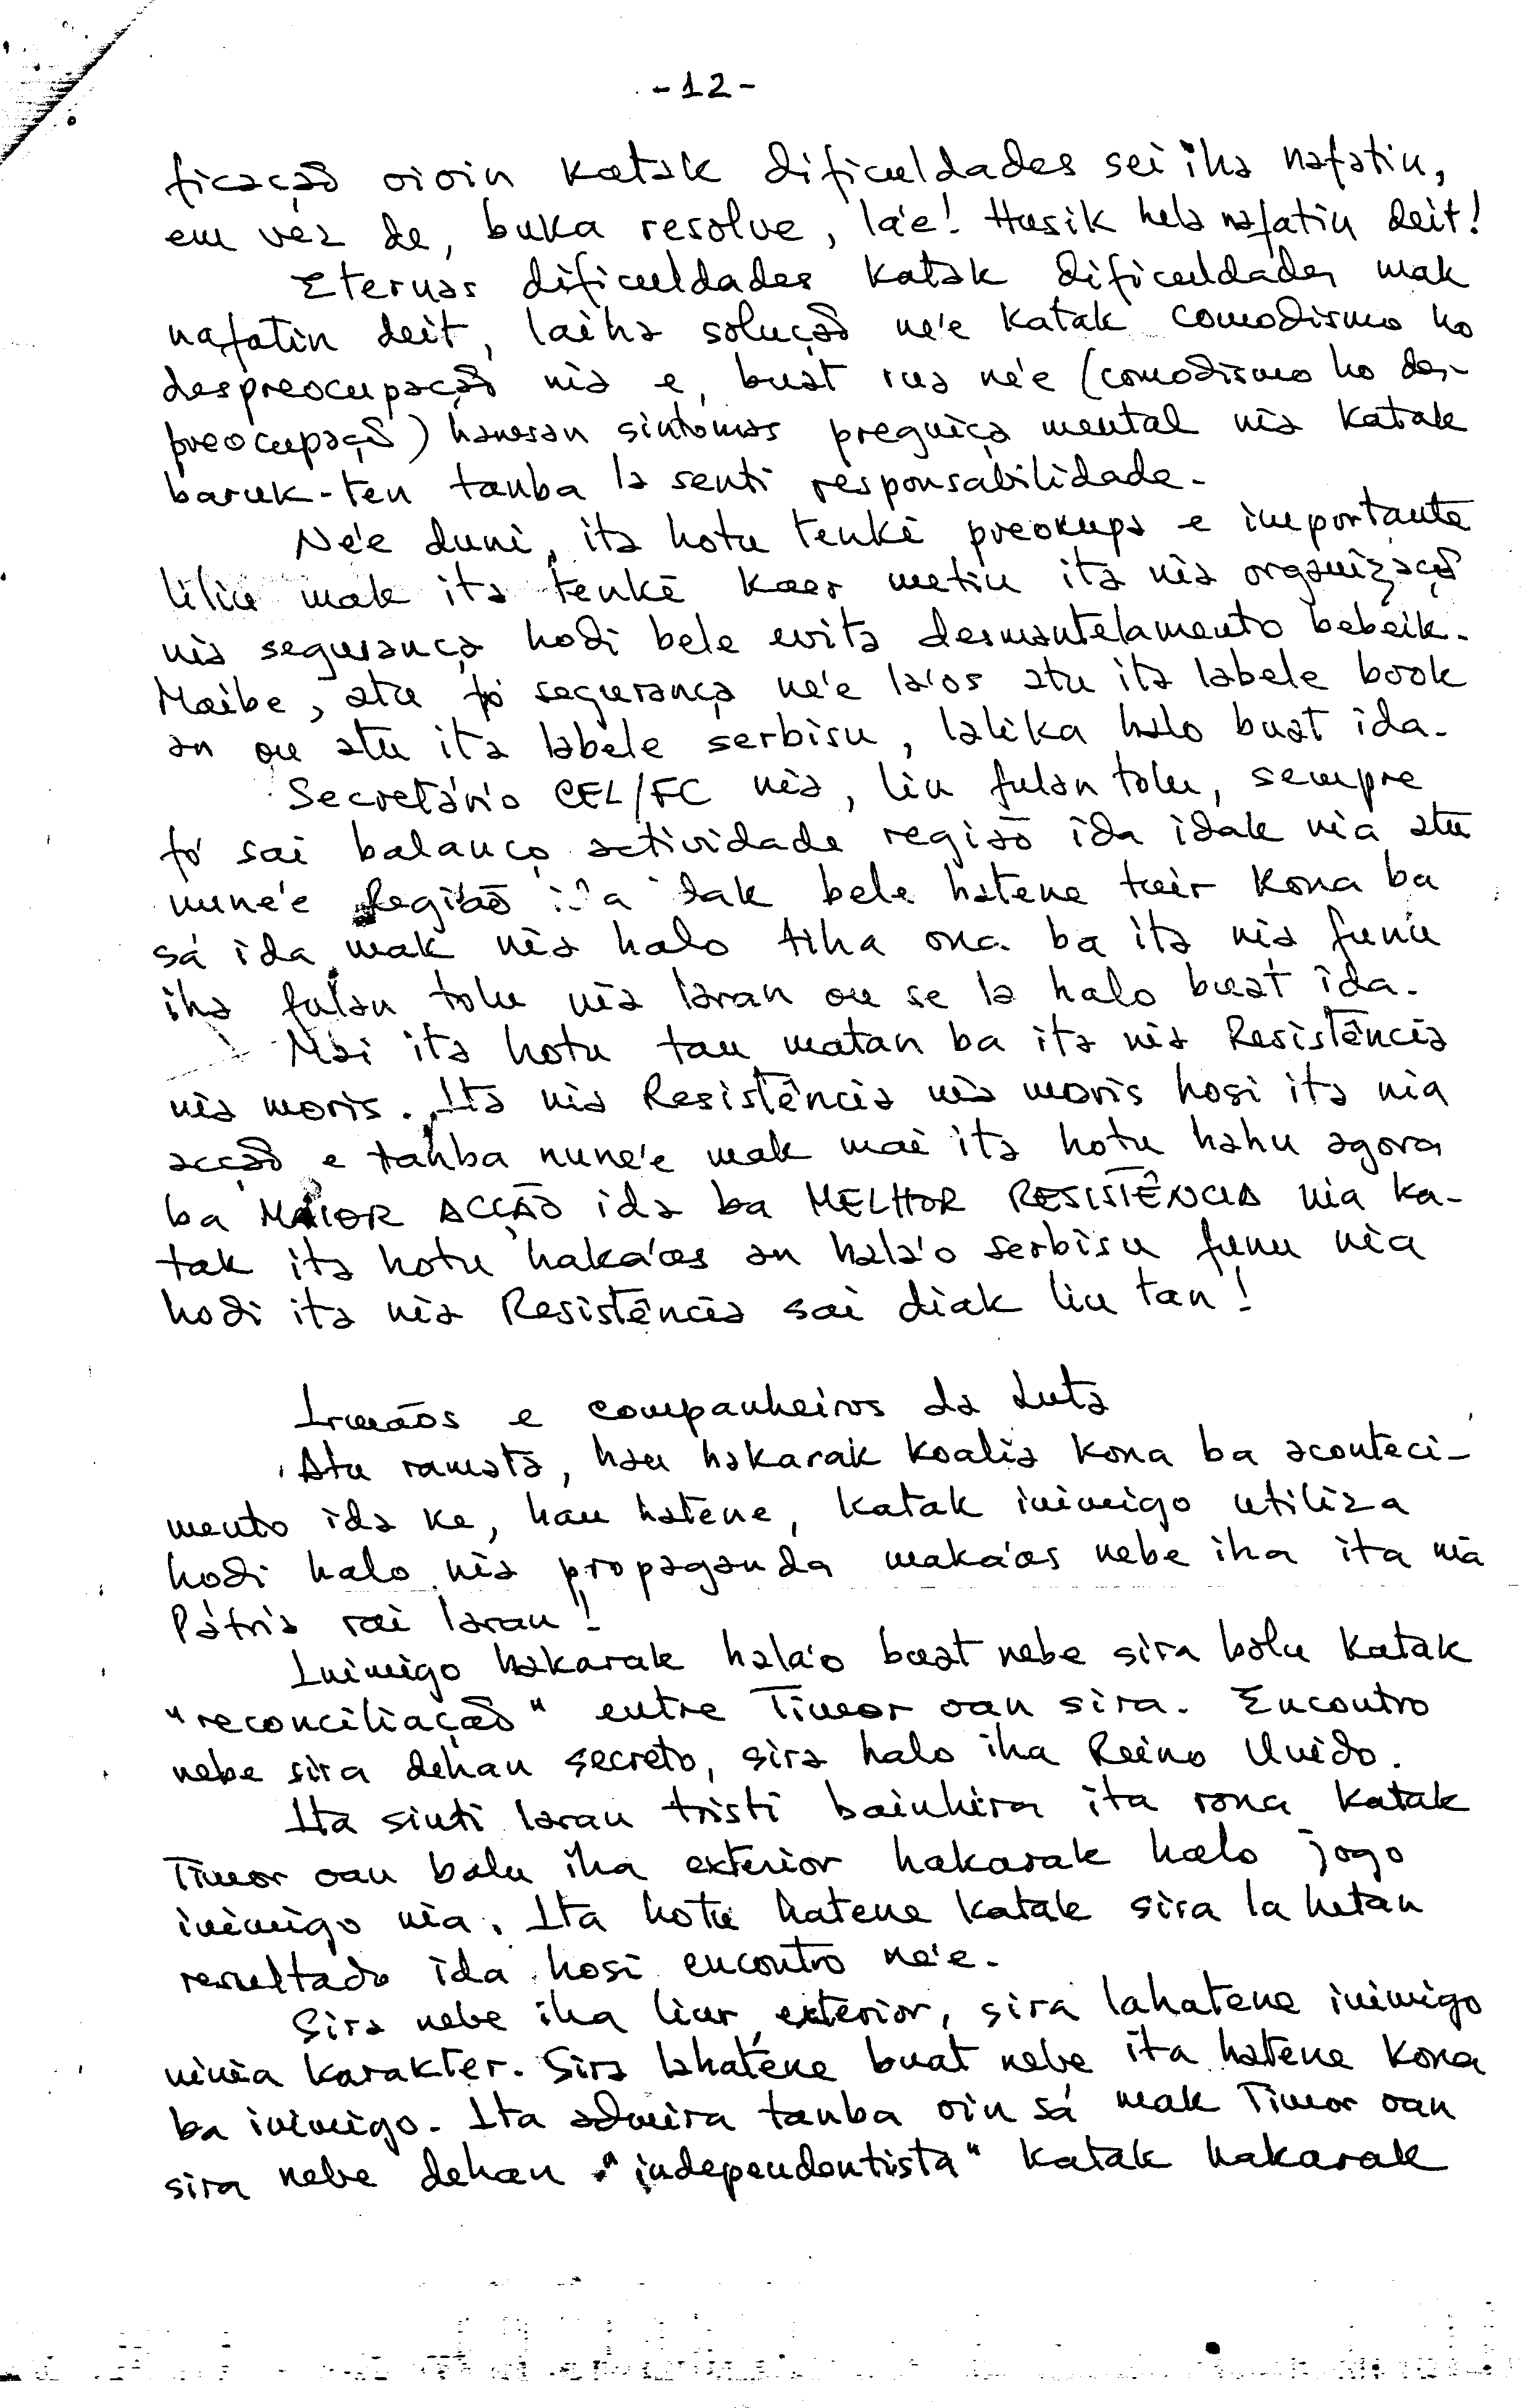 -12-
ficação oioin katak dificuldades sei iha nafatin,
em vez de, buka resolve, lá'e! Husik hela nafatin deit!
Eternas dificuldades katak dificuldades mak
nafatin deit, laiha solução né'e katak comodismo ho
despreocupação nia e, buat rua né'e (comodismo ho des-
preocupação) hanesan sintomas preguiça mental nia katak
baruk-ten tanba la senti responsabilidade.
Né'e duni, ita hotu tenkê preokupa e importante
liliu mak ita tenkê kaer metin ita nia organização
nia segurança hodi bele evita desmantelamento bebeik.
Maibe, atu fó segurança né'e lá'os atu ita labele book
an ou atu ita labele serbisu, lalika halo buat ida.
Secretário CEL/FC nia, liu fulan tolu, sempre
fó sai balanço actividade região ida idak nia atu
nuné'e Região idak bele hatene tuir kona ba
sá ida mak nia halo tiha ona ba ita nia funu
iha fulan tolu nia laran ou se la halo buat ida.
Mai ita hotu tau matan ba ita nia Resistência
nia moris. Ita nia Resistência nia moris hosi ita nia
acção e tanba nuné'e mak mai ita hotu hahu agora
ba MAIOR ACÇÃO ida ba MELHOR RESISTÊNCIA nia ka-
tak ita hotu haká'as an halá'o serbisu funu nia
hodi ita nia Resistência sai diak liu tan!
Irmãos e companheiros da Luta
Atu ramata, hau hakarak koalia kona ba aconteci-
mento ida ke, hau hatene, katak inimigo utiliza
hodi halo nia propaganda maká'as nebe iha ita nia
Pátria rai laran!
Inimigo hakarak halá'o buat nebe sira bolu katak
"reconciliação" entre Timor oan sira. Encontro
nebe sira dehan secreto, sira halo iha Reino Unido.
Ita sinti laran tristi bainhira ita rona katak
Timor oan balu iha exterior hakarak halo jogo
inimigo nia. Ita hotu hatene katak sira la hetan
resultado ida hosi encontro né'e.
Sira nebe iha liur, exterior, sira lahatene inimigo
ninia karakter. Sira lahatene buat nebe ita hatene kona
ba inimigo. Ita admira tanba oin sá mak Timor oan
sira nebe dehan "independentista" katak hakarak